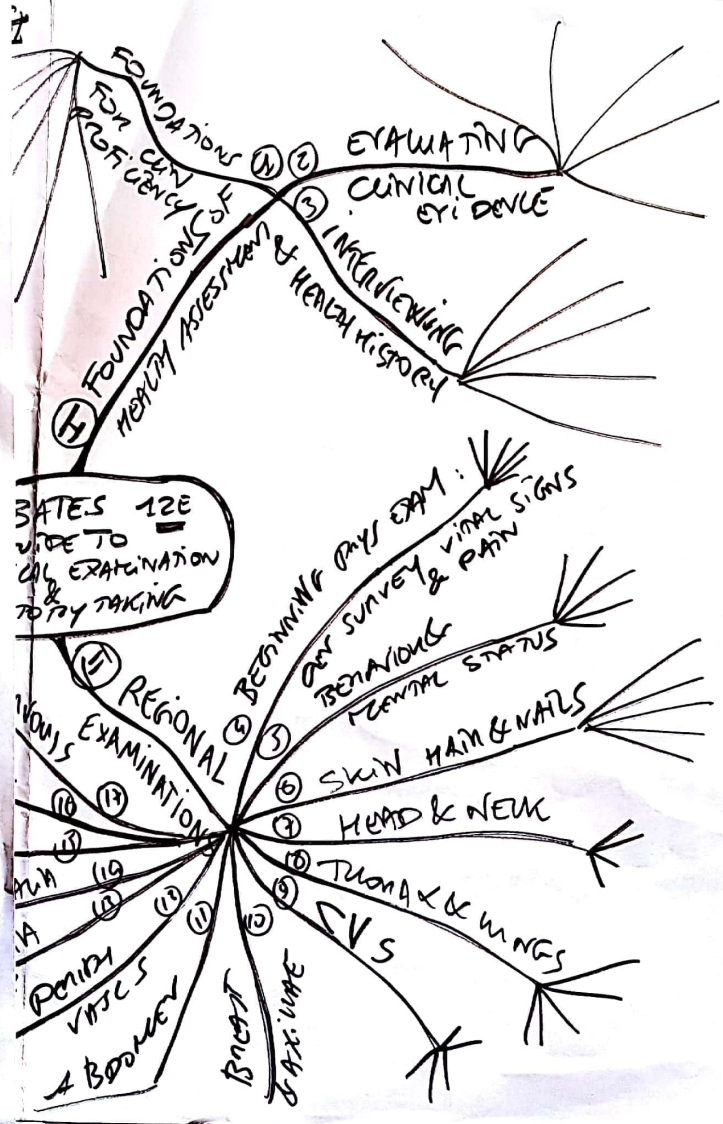 FOUNDATIONS
FOR CLIN
PROFICIENCY
1
2
EVALUATING
CLINICAL
EVIDENCE
3
INTERVIEWING
& HEALTH HISTORY
I
FOUNDATIONS OF
HEALTH ASSESSMENT
BATES 12E
UIDE TO
CAL EXAMINATION
&
TORY TAKING
II
REGIONAL
EXAMINATIONS
4
BEGINNING PHYS EXAM:
GEN SURVEY VITAL SIGNS
& PAIN
5
BEHAVIOUR &
MENTAL STATUS
6
SKIN HAIR & NAILS
7
HEAD & NECK
8
THORAX & LUNGS
9
CVS
10
BREAST
& AXILLAE
11
ABDOMEN
12
PERIPH
VASCS
13
14
15
16
17